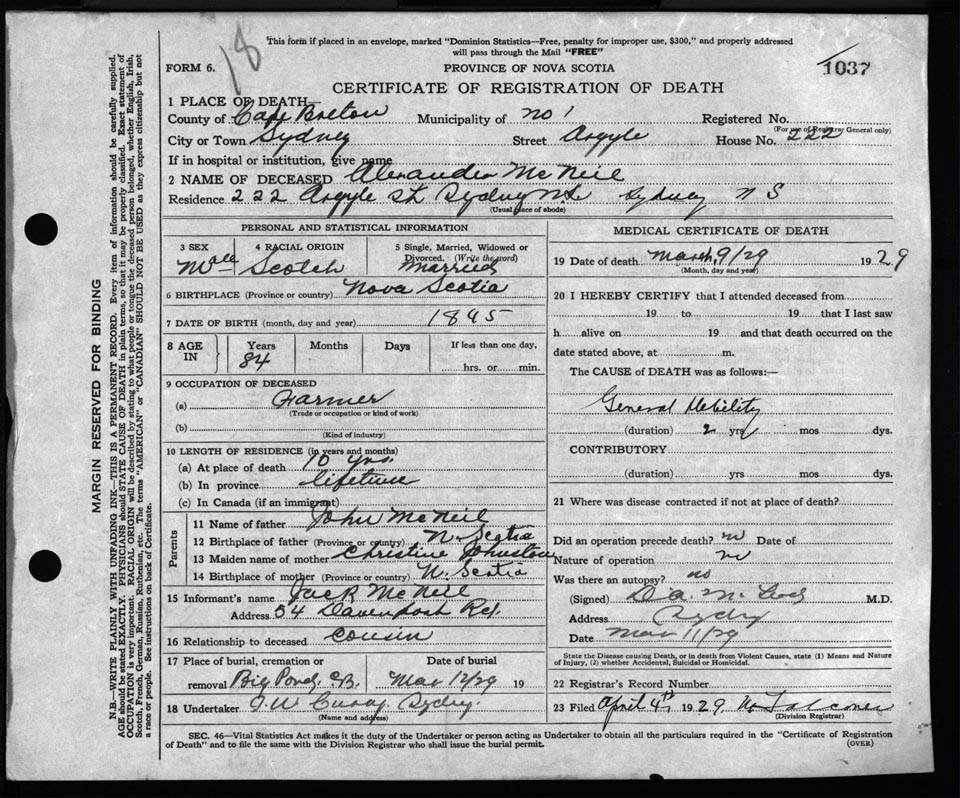 18
This form if placed in an envelope, marked "Dominion Statistics—Free, penalty for improper use, $300," and properly addressed
will pass through the Mail "FREE"
FORM 6. PROVINCE OF NOVA SCOTIA 1037
CERTIFICATE OF REGISTRATION OF DEATH
1 PLACE OF DEATH
County of Cape Breton Municipality of no 1 Registered No.
(For use of Registrar General only)
City or Town Sydney Street Argyle House No. 222
If in hospital or institution, give name
2 NAME OF DECEASED Alexander McNeil
Residence 222 Argyle St Sydney N.S Sydney N S
(Usual place of abode)
PERSONAL AND STATISTICAL INFORMATION
3 SEX 4 RACIAL ORIGIN 5 Single, Married, Widowed or
Divorced. (Write the word)
Male Scotch Married
6 BIRTHPLACE (Province or country) Nova Scotia
7 DATE OF BIRTH (month, day and year) 1845
8 AGE IN Years Months Days If less than one day,
84 hrs. or min.
9 OCCUPATION OF DECEASED
(a) Farmer
(Trade or occupation or kind of work)
(b)
(Kind of industry)
10 LENGTH OF RESIDENCE (in years and months)
(a) At place of death 10 yrs.
(b) In province lifetime
(c) In Canada (if an immigrant)
Parents
11 Name of father John McNeil
12 Birthplace of father (Province or country) N. Scotia
13 Maiden name of mother Christine Johnston
14 Birthplace of mother (Province or country) N. Scotia
15 Informant's name Jack McNeil
Address 54 Davenport Rd.
16 Relationship to deceased cousin
17 Place of burial, cremation or Date of burial
removal Big Pond, C.B. Mar 12/29 19
18 Undertaker Sydney.
(Name and address)
MEDICAL CERTIFICATE OF DEATH
19 Date of death March 9/29 1929
(Month, day and year)
20 I HEREBY CERTIFY that I attended deceased from
19 to 19 that I last saw
h alive on 19 and that death occurred on the
date stated above, at m.
The CAUSE of DEATH was as follows:—
General Debility
(duration) 2 yrs mos dys.
CONTRIBUTORY
(duration) yrs mos dys.
21 Where was disease contracted if not at place of death?
Did an operation precede death? no Date of
Nature of operation no
Was there an autopsy? no
(Signed) M.D.
Address Sydney
Date Mar 11/29
State the Disease causing Death, or in death from Violent Causes, state (1) Means and Nature
of Injury, (2) whether Accidental, Suicidal or Homicidal.
22 Registrar's Record Number
23 Filed April 4th 1929.
(Division Registrar)
SEC. 46—Vital Statistics Act makes it the duty of the Undertaker or person acting as Undertaker to obtain all the particulars required in the "Certificate of Registration
of Death" and to file the same with the Division Registrar who shall issue the burial permit. (OVER)
MARGIN RESERVED FOR BINDING
N.B.—WRITE PLAINLY WITH UNFADING INK—THIS IS A PERMANENT RECORD. Every item of information should be carefully supplied.
AGE should be stated EXACTLY. PHYSICIANS should STATE CAUSE OF DEATH in plain terms, so that it may be properly classified. Exact statement of
OCCUPATION is very important. RACIAL ORIGIN will be described by stating to what people or tongue the deceased person belonged, whether English, Irish,
Scotch, French, German, Russian, Ruthenian, etc. The terms "AMERICAN" or "CANADIAN" SHOULD NOT BE USED as they express citizenship but not
a race or people. See instructions on back of Certificate.